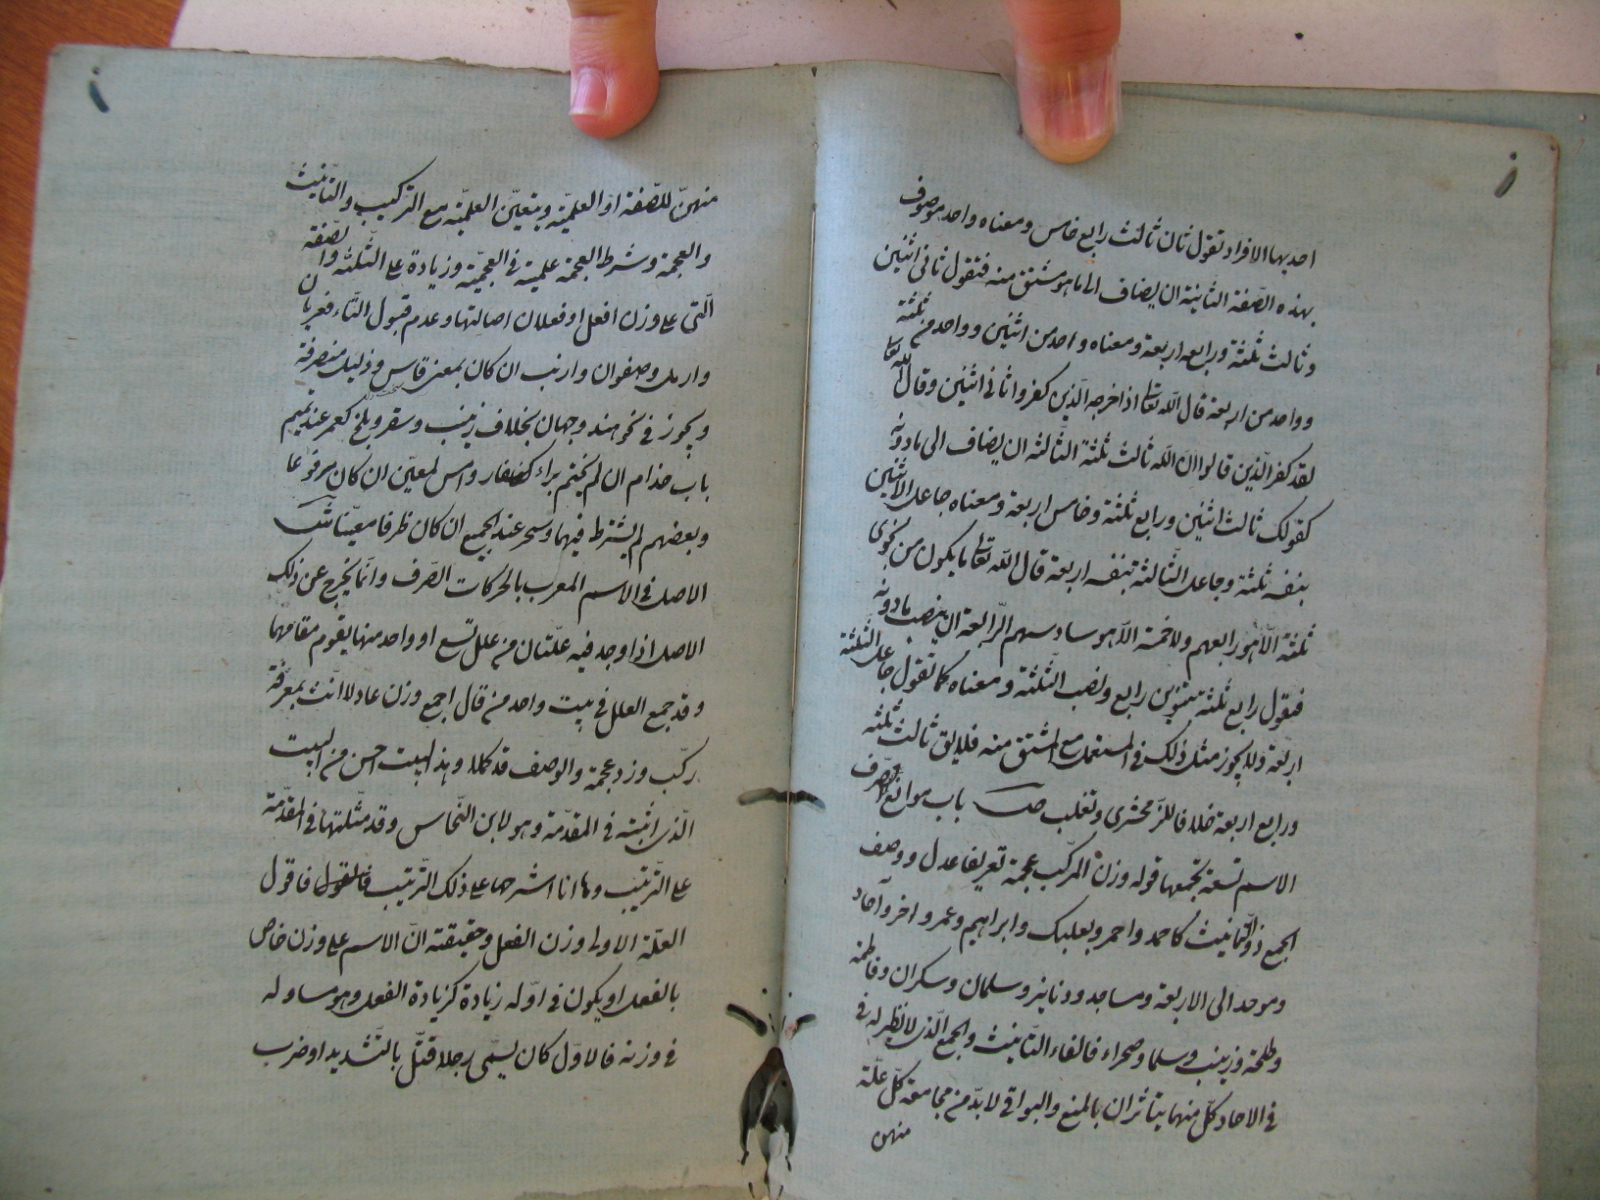 احديها الافراد تقول ثان ثالث رابع خامس ومعناه واحد موصوف
بهذه الصّفة الثانية ان يضاف الى ما هو مشتق منه فتقول ثانى اثنين
وثالث ثلثة ورابع اربعة ومعناه واحد من اثنين وواحد من ثلثة
وواحد من اربعة قال اللّه تعالى اذ اخرجه الّذين كفروا ثانى اثنين وقال اللّه تعالى
لقد كفر الّذين قالوا انّ اللّه ثالث ثلثة الثالثة ان يضاف الى ما دونه
كقولك ثالث اثنين ورابع ثلثة وخامس اربعة ومعناه جاعل الاثنين
بنفسه ثلثة وجاعل الثّالثة بنفسه اربعة قال اللّه تعالى ما يكون من نجوى
ثلثة الّا هو رابعهم ولا خمسة الّا هو سادسهم الرّابعة ان ينصب ما دونه
فيقول رابع ثلثة بتنوين رابع ونصب الثّلثة ومعناه كما تقول جاعل الثّلثة
اربعة ولا يجوز مثل ذلك فى المستعمل مع المشتق منه فلا يق ثالث ثلثة
ورابع اربعة خلافا للزّمخشرى وثعلب ص باب موانع الصّرف
الاسم تسعة يجمعها قوله وزن المركّب عجمة تعريفها عدل ووصف
الجمع زد تأنيث كاحمد واحمر وبعلبك وابراهيم وعمر واخر وآحاد
وموحد الى الاربعة ومساجد ودنانير وسلمان وسكران وفاطمة
وطلحة وزينب وسلما وصحراء فالفاء التّأنيث والجمع الّذى لا نظير له فى
فى الاحاد كلّ منهما يتأثران بالمنع والبواقى لا بدّ من مجامعة كلّ علّة
منهن
منهنّ للصّفة او العلميّة ويتعيّن العلميّة مع التركيب والتانيث
والعجمة وشرط العجمة علمية فى العجميّة وزيادة على الثّلثة والصّفة
الّتى على وزن افعل او فعلان اصالتها وعدم قبول التّاء فعريان
وارمل وصفوان وارنب ان كان بمعنى قاس وذليل منصرفة
ويجوز فى نحو هند وجهان بخلاف زينب وسقر وبلخ كعمر عند تميم
باب حذام ان لم يختم براء كسفار وامس لمعيّن ان كان مرفوعا
وبعضهم لم يشترط فيهما وسحر عند الجميع ان كان ظرفا معيّنا ش
الاصل فى الاسم المعرب بالحركات الصّرف وانّما يخرج عن ذلك
الاصل اذا وجد فيه علّتان من علل تسع او واحد منها يقوم مقامهما
وقد جمع العلل فى بيت واحد من قال اجمع وزن عادلا انّث بمعرفة
ركّب وزد عجمة والوصف قد كملا وهذا البيت احسن من البيت
الّذى اثبته فى المقدّمة وهو لابن النّحاس وقد مثّلتها فى المقدّمة
على التّرتيب وها انا اشرحها على ذلك التّرتيب فاقول
العلّة الاولى وزن الفعل وحقيقته انّ الاسم على وزن خاص
بالفعل او يكون فى اوّله زيادة كزيادة الفعل وهو مساو له
فى وزنه فالاوّل كان يسمّى رجلا قتّل بالتّشديد او ضرب